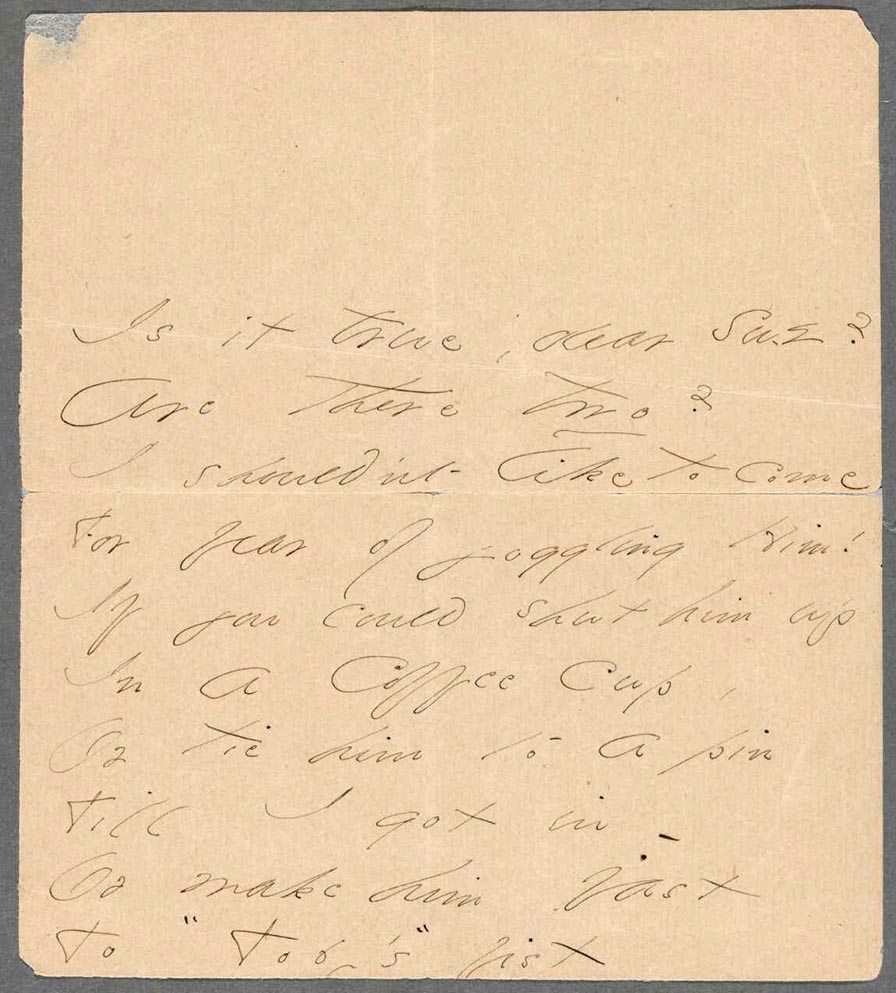 Is it true, dear Sue?
Are there two?
I should'nt like to come
For fear of joggling Him!
If you could shut him up
In a Coffee Cup,
Or tie him to a pin
Till I got in –
Or make him fast
To "Toby's" fist